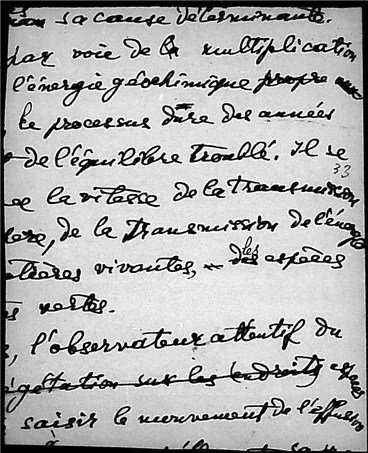 sa cause déterminante.
par voie de la multiplication
l'énergie géochimique propre aux
le processus dure des années
de l'équilibre troublé. Il se
33
la vitesse de la transmission
de la transmission de l'énergie
vivantes, les espèces
vertes.
l'observateur attentif du
végétation sur les endroits
saisir le mouvement de l'effusion